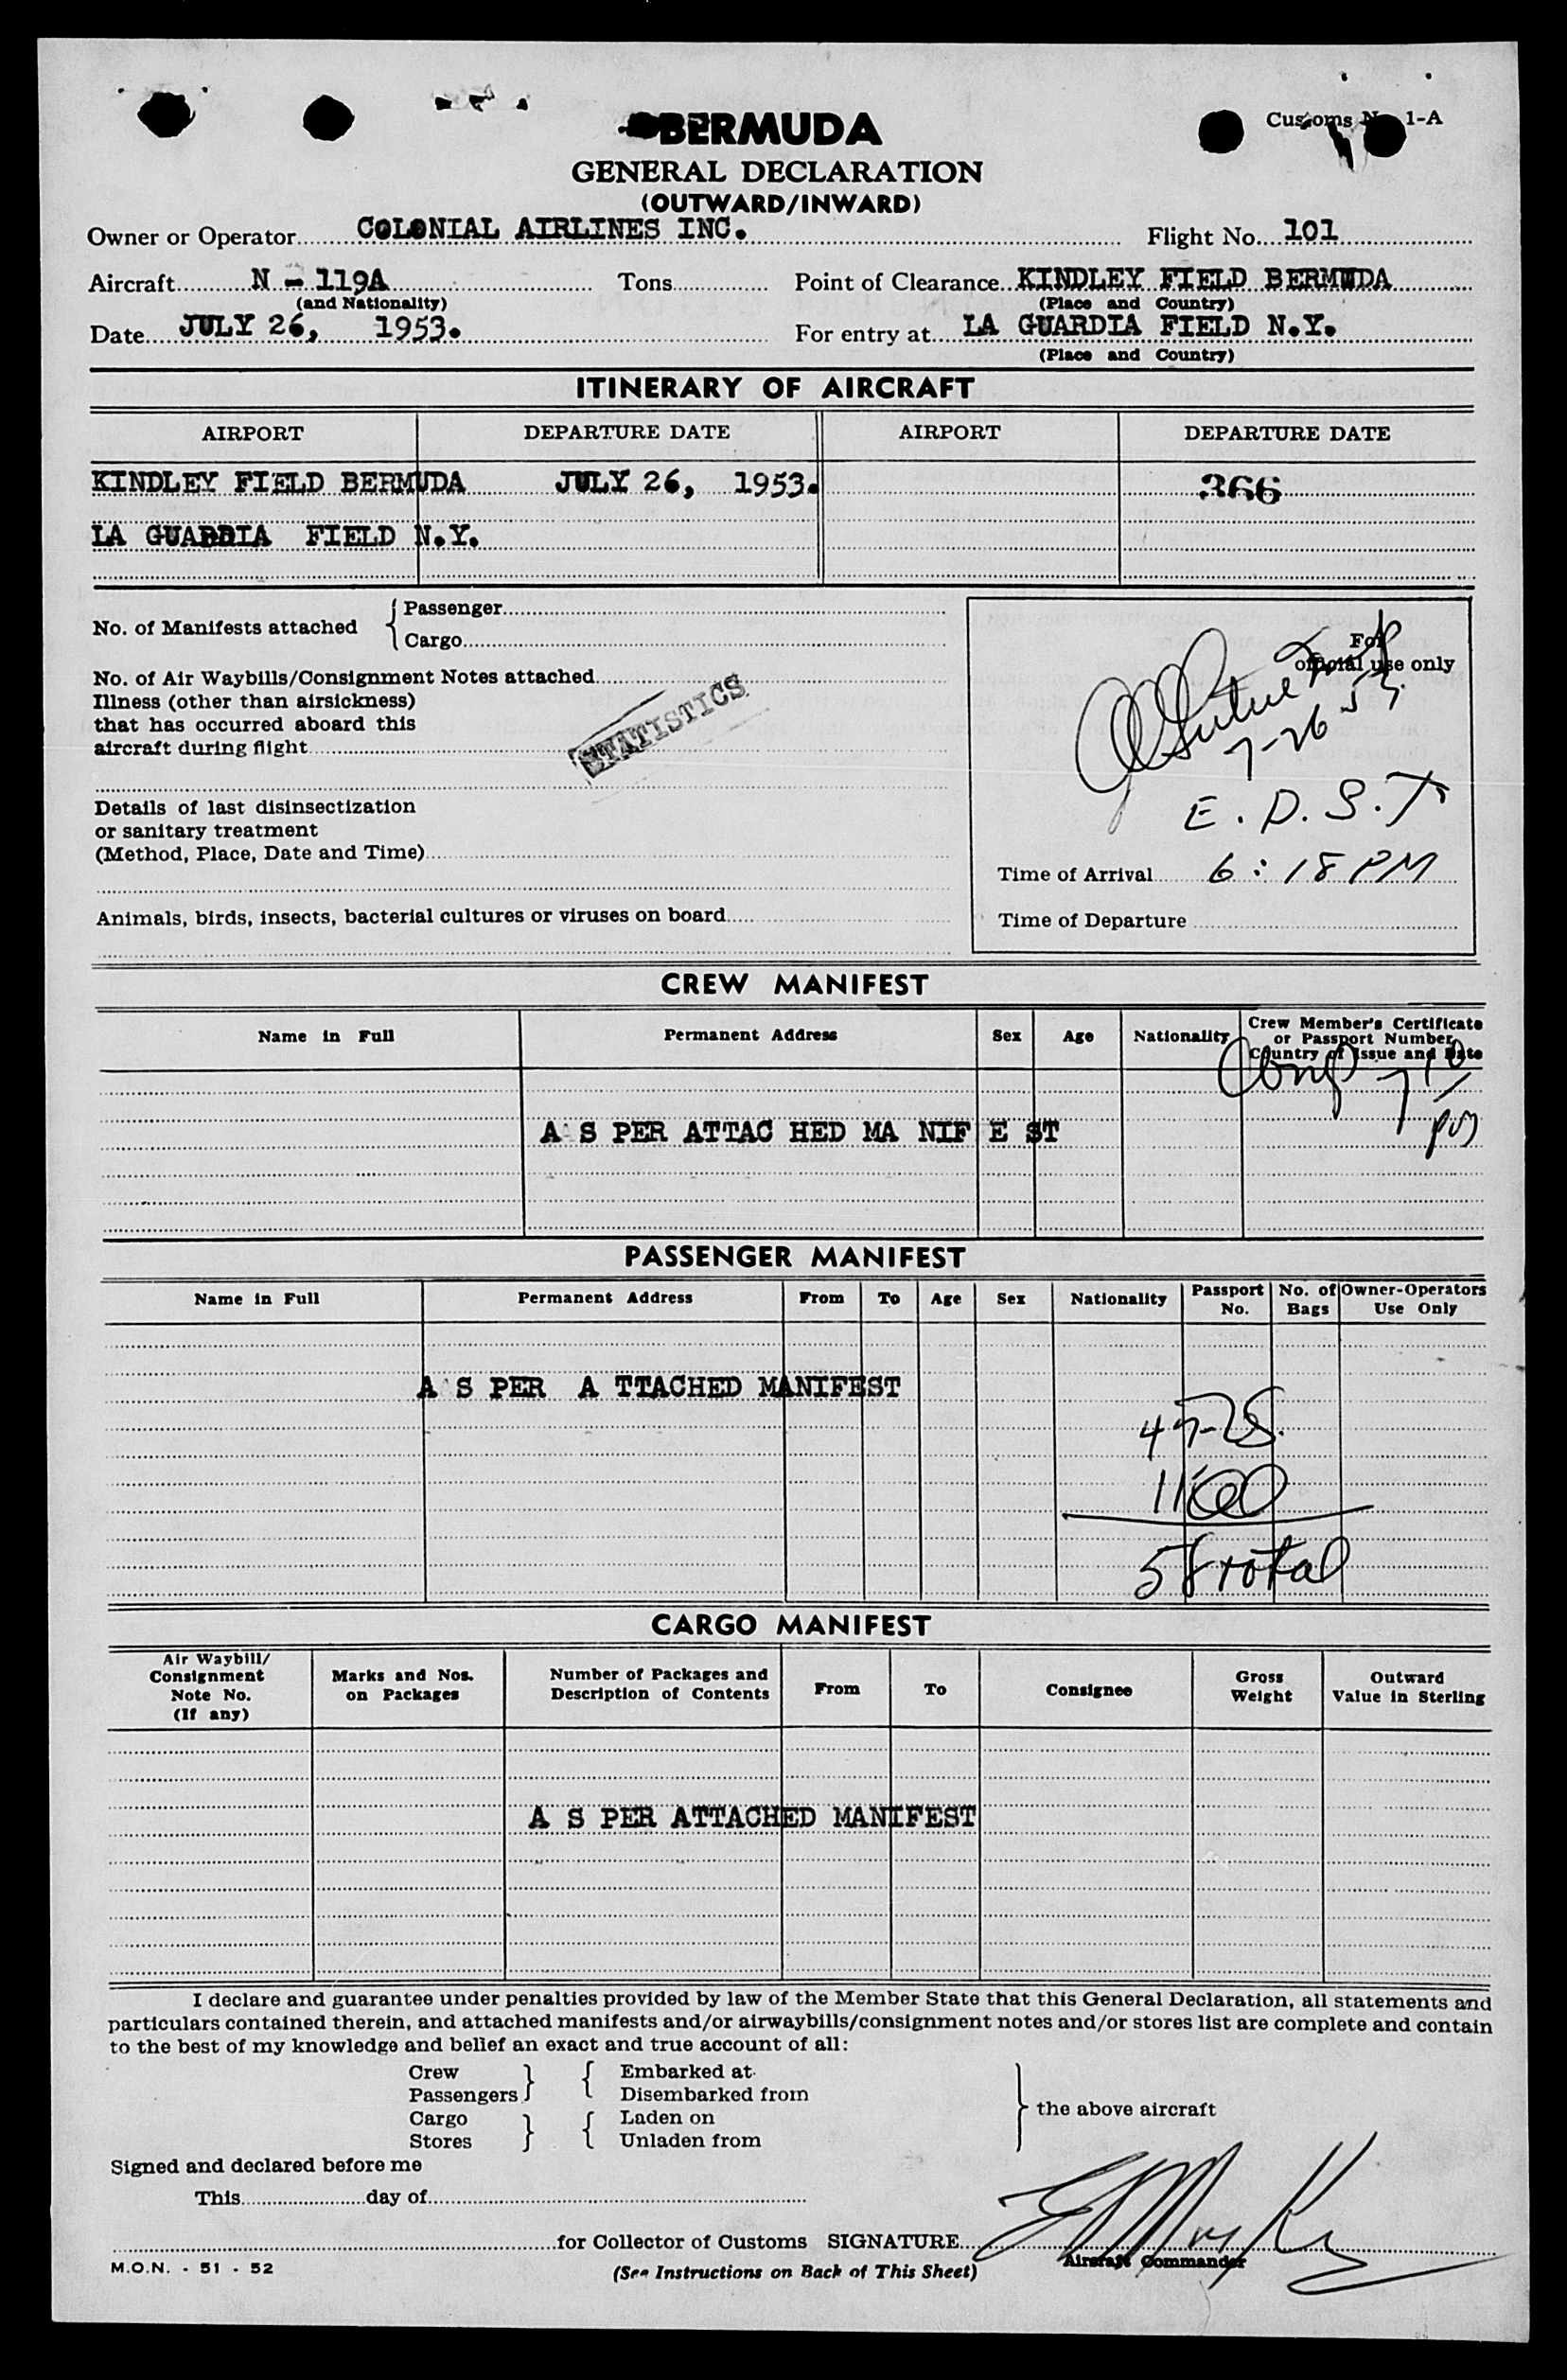 Customs 1-A
BERMUDA
GENERAL DECLARATION
(OUTWARD/INWARD)
Owner or Operator COLONIAL AIRLINES INC. Flight No. 101
Aircraft N - 119A Tons Point of Clearance KINDLEY FIELD BERMUDA
(and Nationality) (Place and Country)
Date JULY 26, 1953. For entry at LA GUARDIA FIELD N.Y.
(Place and Country)
ITINERARY OF AIRCRAFT
AIRPORT DEPARTURE DATE AIRPORT DEPARTURE DATE
KINDLEY FIELD BERMUDA JULY 26, 1953. 366
LA GUARDIA FIELD N.Y.
No. of Manifests attached { Passenger
Cargo
For
official use only
No. of Air Waybills/Consignment Notes attached
Illness (other than airsickness)
that has occurred aboard this
aircraft during flight
STATISTICS
7-26 53
E.D.S.T
Details of last disinsectization
or sanitary treatment
(Method, Place, Date and Time)
Time of Arrival 6:18 PM
Animals, birds, insects, bacterial cultures or viruses on board
Time of Departure
CREW MANIFEST
Name in Full Permanent Address Sex Age Nationality Crew Member's Certificate
or Passport Number,
Country of Issue and Date
7 10
PM
A S PER ATTAC HED MA NIF E ST
PASSENGER MANIFEST
Name in Full Permanent Address From To Age Sex Nationality Passport No. No. of Bags Owner-Operators Use Only
A S PER A TTACHED MANIFEST
58 total
CARGO MANIFEST
Air Waybill/
Consignment
Note No.
(If any)
Marks and Nos.
on Packages
Number of Packages and
Description of Contents
From To Consignee
Gross
Weight
Outward
Value in Sterling
A S PER ATTACHED MANIFEST
I declare and guarantee under penalties provided by law of the Member State that this General Declaration, all statements and
particulars contained therein, and attached manifests and/or airwaybills/consignment notes and/or stores list are complete and contain
to the best of my knowledge and belief an exact and true account of all:
Crew } { Embarked at
Passengers Disembarked from
Cargo } { Laden on } the above aircraft
Stores Unladen from
Signed and declared before me
This day of
for Collector of Customs SIGNATURE
Aircraft Commander
M.O.N. - 51 - 52
(See Instructions on Back of This Sheet)